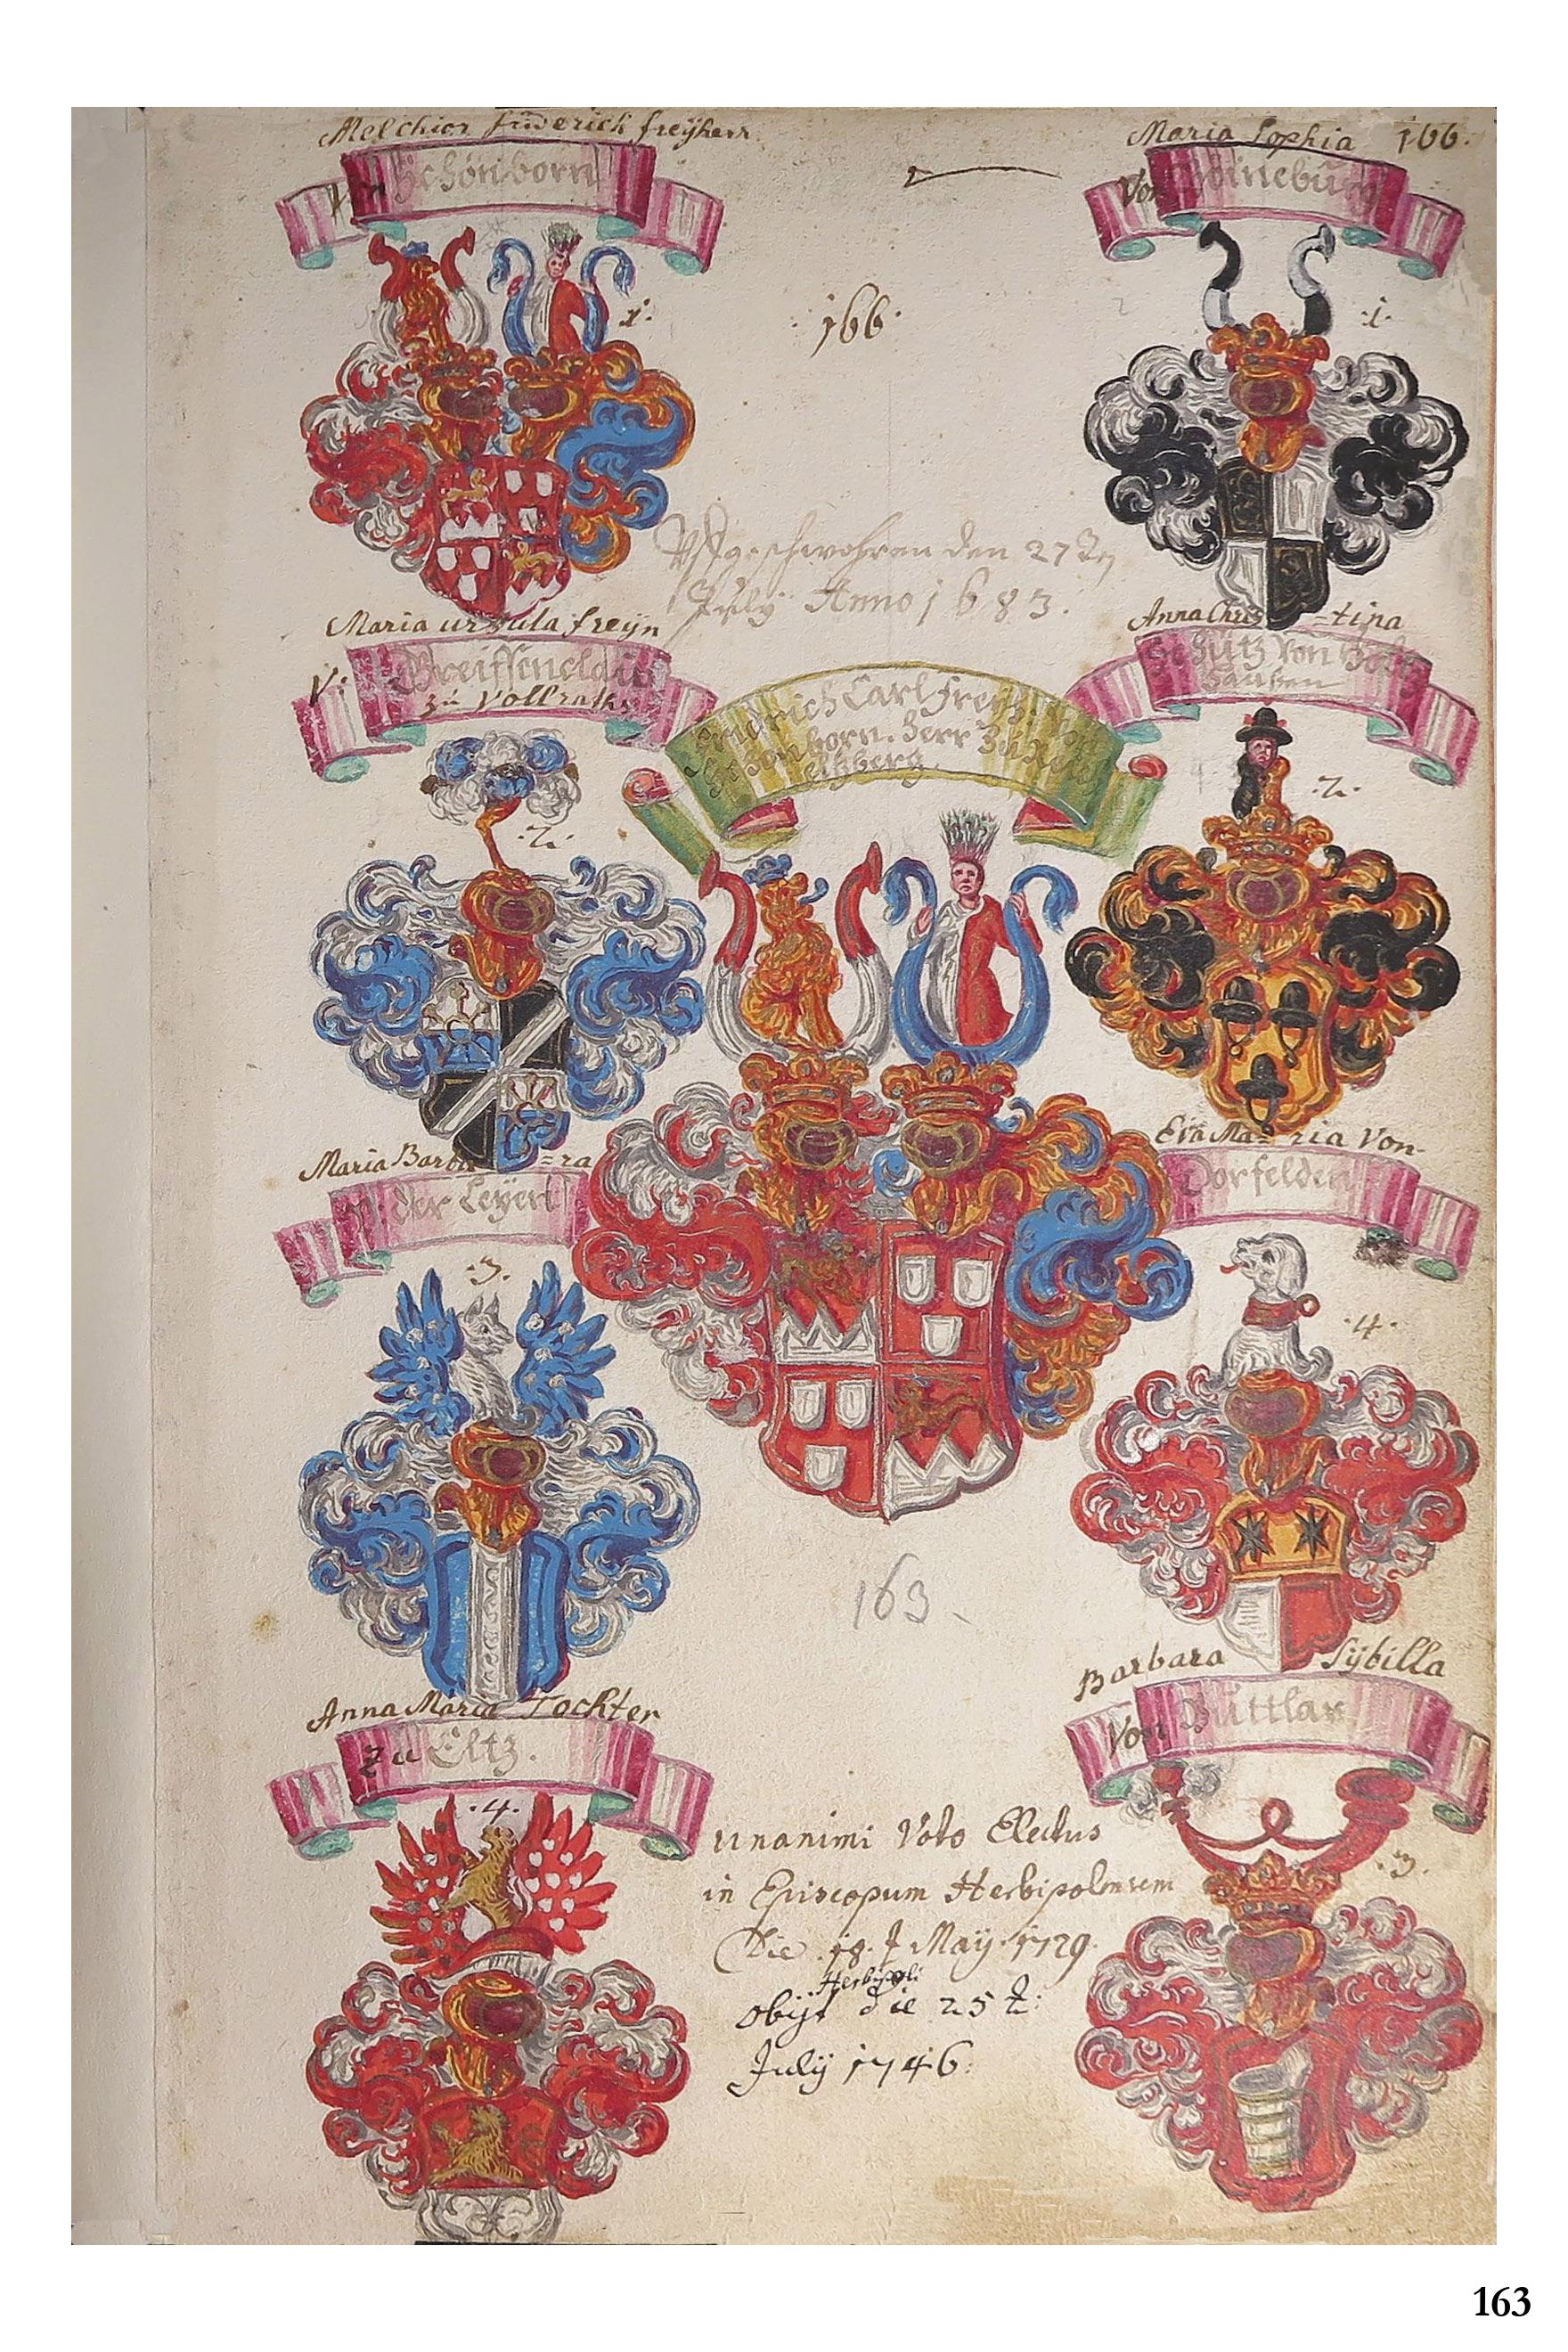 Melchior friderich freÿherr
Von Schönborn
.1.
Maria Sophia
Von Boineburg
166.
.1.
.166.
Uffgeschwohren den 27 ten
July Anno 1683.
Maria ursula freÿn
V: Greiffenclau
zu Vollraths
.2.
Anna Chris=tina
Schütz Von
hausen
.2.
Fridrich Carl Freÿh: Von
Schönborn. Herr Zu
eltzberg
Maria Barba=ra
V: der Leÿen
.3.
Eva Ma=ria Von
Dorfelden
.4.
163
Anna Maria Tochter
zu Eltz.
.4.
Barbara Sÿbilla
Von Buttlar
.3.
Unanimi Voto Electus
in Episcopum Herbipolensem
Die 18. t Maÿ 1729.
Herbipoli
obijt die 25 t:
Julÿ 1746.
163